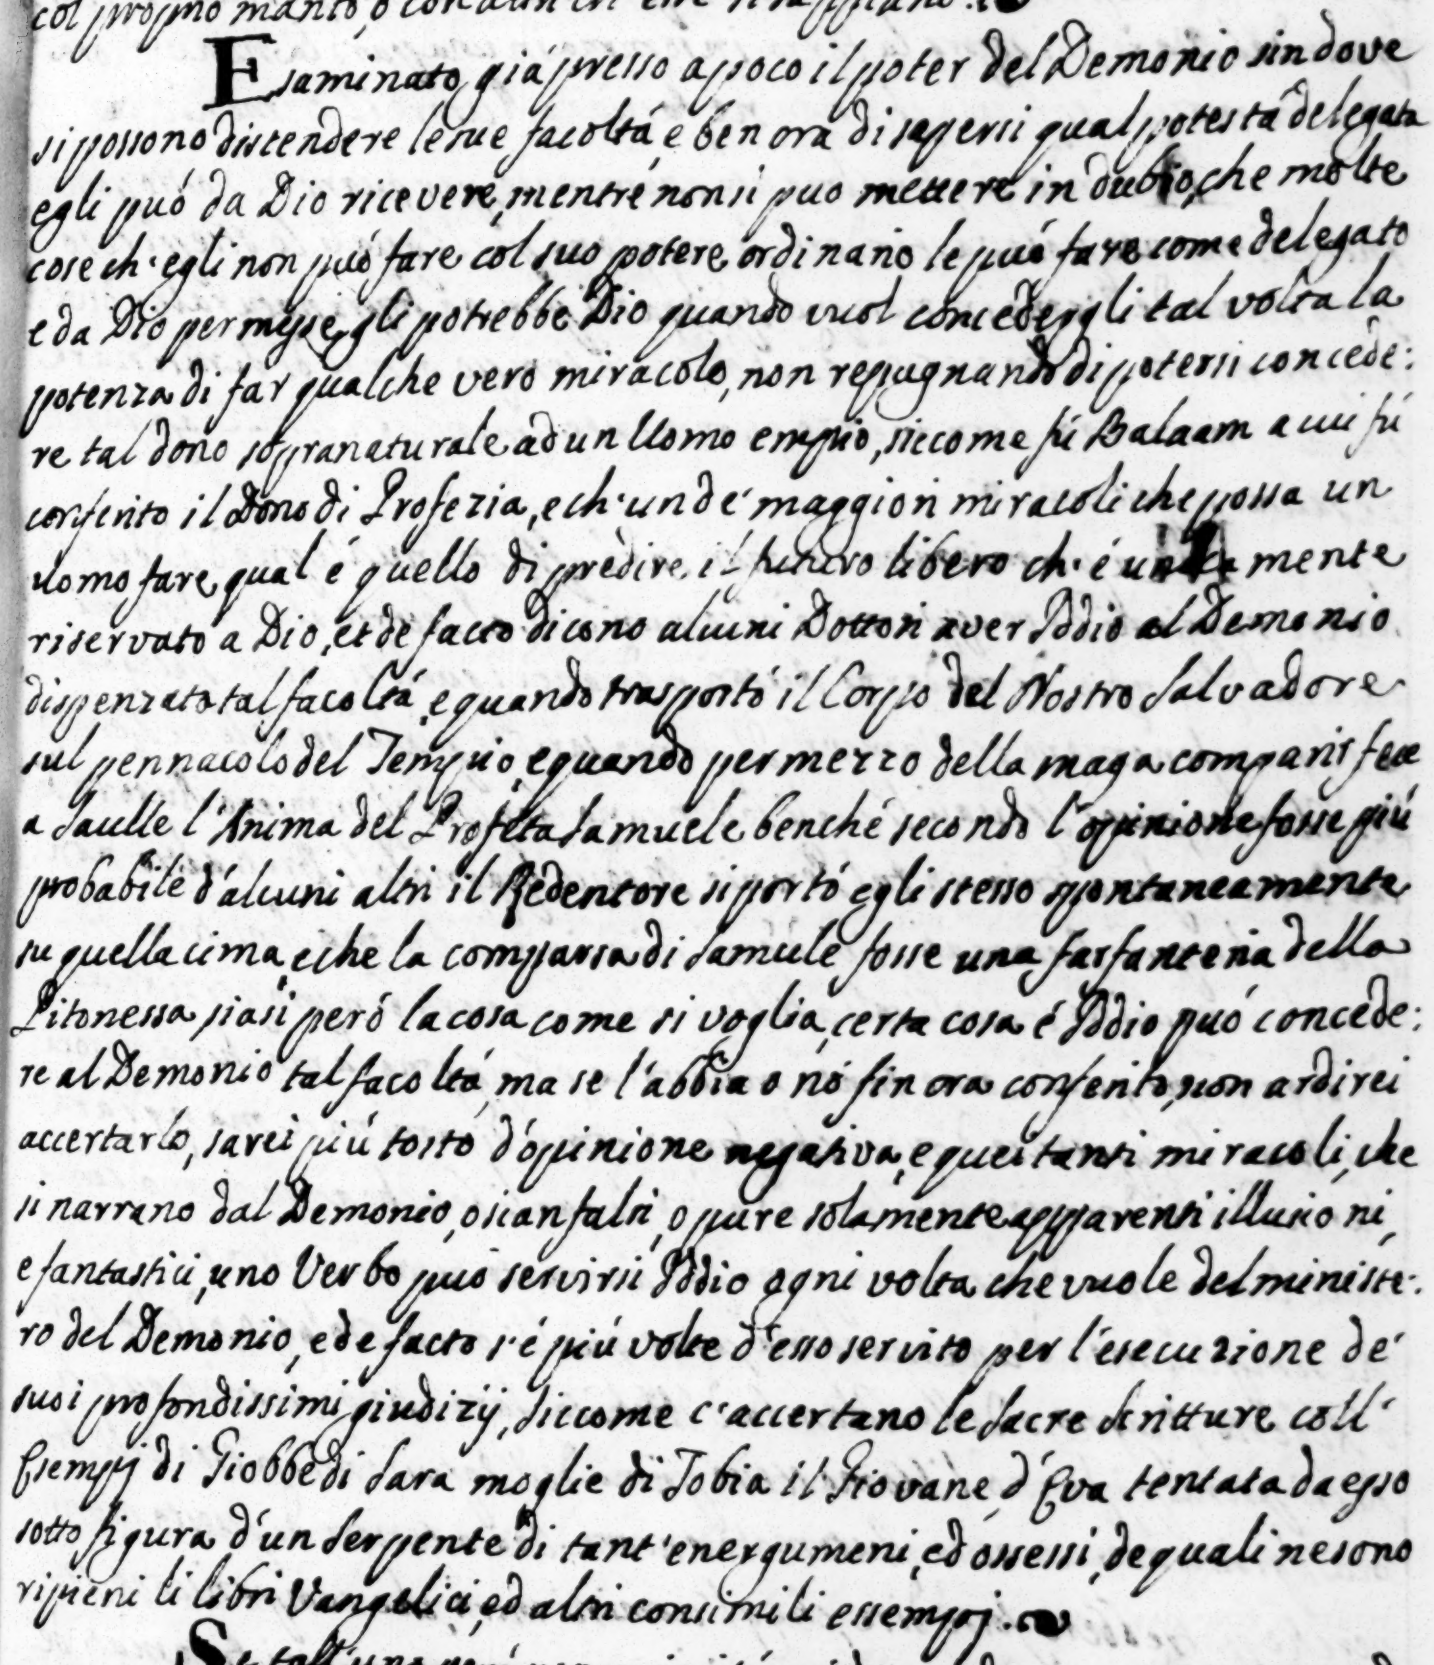 col proprio manto, o con altri che si sappiano.
Esaminato, giá presso a poco il poter del Demonio sin dove
si possono distendere le sue facoltá, e ben ora di sapersi qual potestá delegata
egli puó da Dio ricevere, mentre non si puo mettere in dubio, che molte
cose ch'egli non puó fare col suo potere ordinario le puó fare come delegato
e da Dio permesse, gli potrebbe Dio quando vuol concedergli tal volta la
potenza di far qualche vero miracolo, non repugnando di potersi concede:
re tal dono sopranaturale ad un Uomo empio, siccome fú Balaam a cui fú
conferito il Dono di Profezia, e ch'un de' maggiori miracoli che possa un
uomo fare, qual é quello di predire il futuro libero ch'é unicamente
riservato a Dio, et de facto dicono alcuni Dottori aver Iddio al Demonio
dispenzato tal facoltá, e quando trasportó il Corpo del Nostro Salvadore
sul pennacolo del Tempio, e quando per mezzo della maga comparir fece
a Saulle l'Anima del Profeta Samuele, benché secondo l'opinione fosse piú
probabile d'alcuni altri il Redentore si portó egli stesso spontaneamente
su quella cima, e che la comparsa di Samuele fosse una farfanteria della
Pitonessa, siasi peró la cosa come si voglia, certa cosa é Iddio puó concede:
re al Demonio tal facoltá, ma se l'abbia o nó fin ora conferito, non ardirei
accertarlo, sarei piú tosto d'opinione negativa, e quei tanti miracoli, che
si narrano dal Demonio, o sian falsi, o pure solamente apparenti illusioni,
e fantastici, uno Verbo puó servirsi Iddio ogni volta che vuole del ministe:
ro del Demonio, e de facto s'é piú volte d'esso servito per l'esecuzione de'
suoi profondissimi giudizij, siccome c'accertano le Sacre Scritture coll'
Esempj di Giobbe di Sara moglie di Tobia il Giovane, d'Eva tentata da esso
sotto figura d'un Serpente di tant'energumeni, ed ossessi, de quali ne sono
ripieni li libri Vangelici, ed altri consimili essempj.